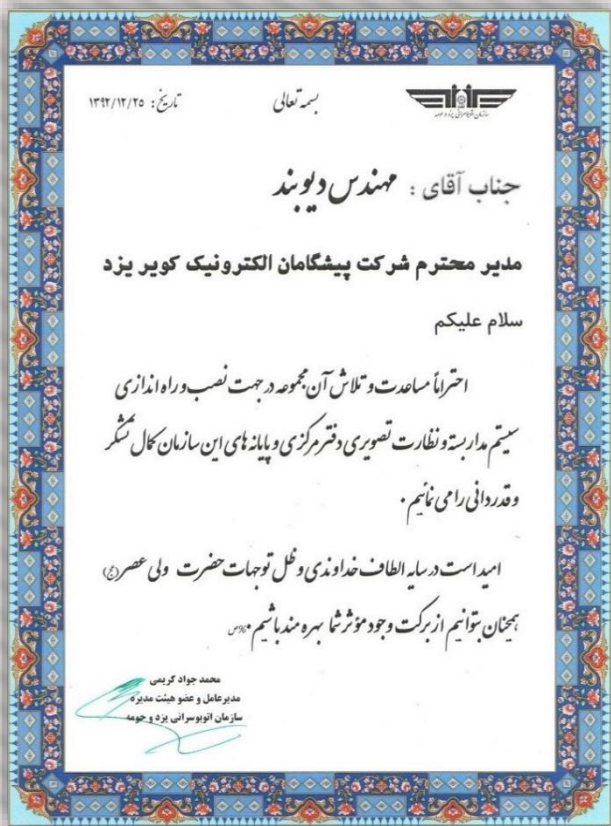 سازمان اتوبوسرانی یزد و حومه
بسمه تعالی
تاریخ: ۱۳۹۲/۱۲/۲۵
جناب آقای : مهندس دیوبند
مدیر محترم شرکت پیشگامان الکترونیک کویر یزد
سلام علیکم
احتراماً مساعدت و تلاش آن مجموعه در جهت نصب و راه اندازی
سیستم مداربسته و نظارت تصویری دفتر مرکزی و پایانه های این سازمان کمال تشکر
و قدردانی را می نمائیم .
امید است در سایه الطاف خداوندی و ظل توجهات حضرت ولی عصر (عج)
همچنان بتوانیم از برکت وجود مؤثر شما بهره مند باشیم .
محمد جواد کریمی
مدیرعامل و عضو هیئت مدیره
سازمان اتوبوسرانی یزد و حومه